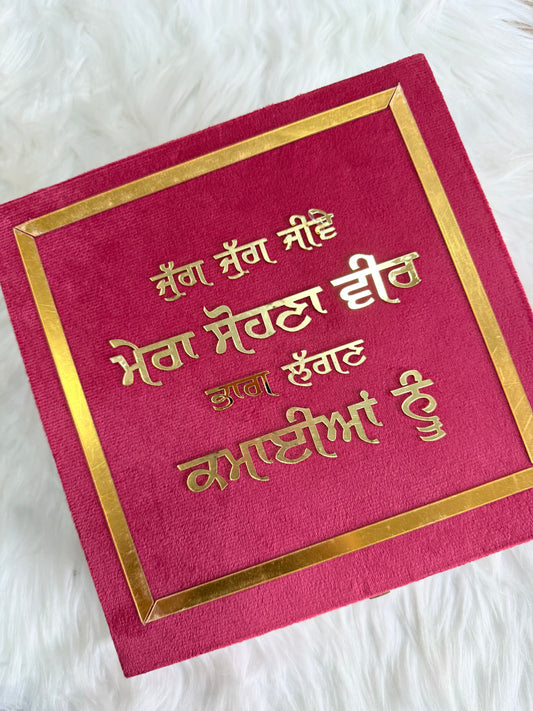 ਜੁੱਗ ਜੁੱਗ ਜੀਵੇ
ਮੇਰਾ ਸੋਹਣਾ ਵੀਰ
ਭਾਗ ਲੱਗਣ
ਕਮਾਈਆਂ ਨੂੰ